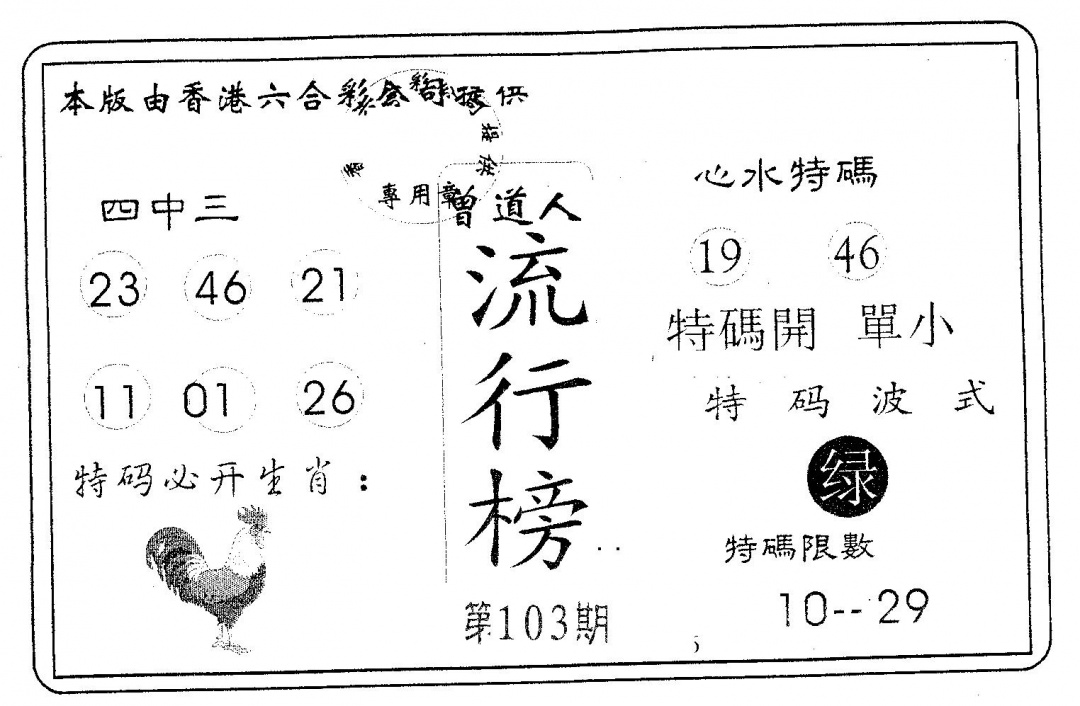 本版由香港六合彩公司提供
提供
專用章
四中三
23 46 21
11 01 26
特码必开生肖：
曾道人
流行榜
第103期
心水特碼
19 46
特碼開 單小
特码波式
绿
特碼限數
10--29